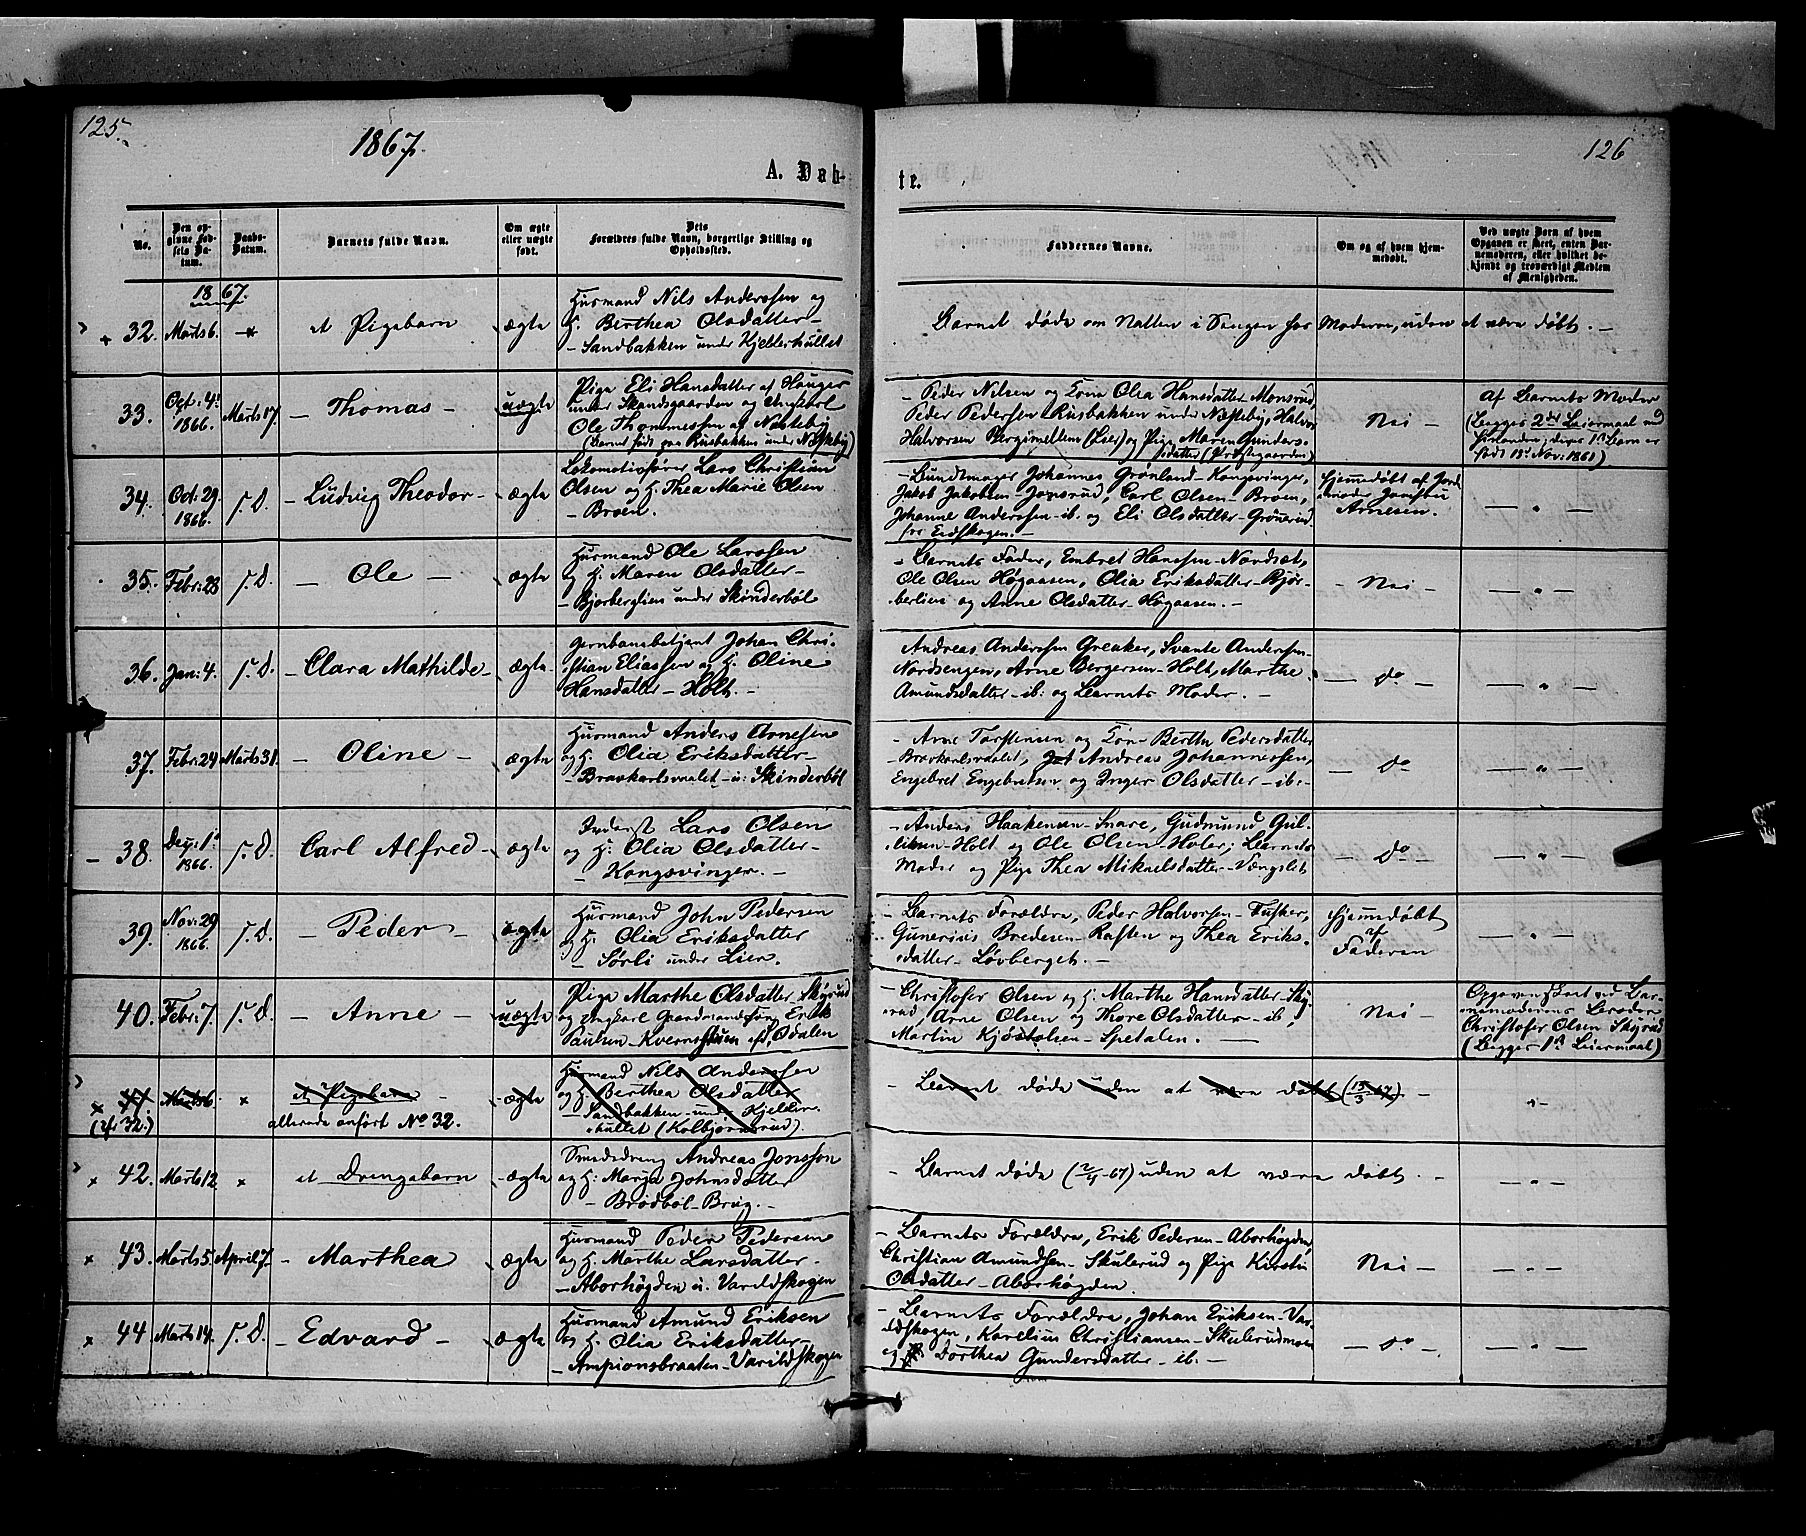 125.
1867.
A. Døb-
No.
Den opgivne Fødsels Datum.
Daabs-Datum.
Barnets fulde Navn.
Om ægte eller uægte født.
Dets Forældres fulde Navn, borgerlige Stilling og Opholdssted.
1867.
32. Marts 6. — et Pigebarn ægte
Husmand Nils Anderssen og
H. Berthea Olsdatter –
– Sandbakken under Kjelderhullet
33. Oct: 4de 1866. Marts 17. – Thomas – uægte
Pige Eli Hansdatter af Hauger
under Skandsgaarden og Ungkarl
Ole Thommessen af Næsteby
(Barnet født paa Rusbakken under Næsteby)
34. Oct: 29. 1866. s. D. – Ludvig Theodor – ægte
Lokomotivfører Lars Christian
Olsen og H. Thea Marie Olsen
– Broen.
35. Febr: 23 s. D. – Ole – ægte
Husmand Ole Larssen
og H. Maren Olsdatter –
– Bjorberglien under Skinderböl
36. Jan: 4. s. D. – Clara Mathilde – ægte
Jernbanebetjent Johan Chri-
stian Eliassen og H. Oline
Hansdatter – Holt. –
37. Febr: 24 Marts 31. – Oline – ægte
Husmand Anders Arnesen
og H. Olia Eriksdatter –
– Bravkarlsvalet – u: Skinderböl
38. Dec: 1ste 1866. s. D. Carl Alfred – ægte
Inderst Lars Olsen
og H. Olia Olsdatter –
– Kongsvinger. –
39. Nov: 29 1866. s. D. – Peder – ægte
Husmand John Pedersen
og H. Olia Eriksdatter
– Sørli under Lier.
40. Febr: 7. s. D. – Anne – uægte
Pige Marthe Olsdatter – Skyrud
og Ungkarl Gaardmandssøn Erik
Paulsen – Kvernstuen Odalen
41. (cfr 32.) Marts 6 × et Pigebarn – ægte
allerede anført No 32.
Husmand Nils Anderssen
og H. Berthea Olsdatter
– Sandbakken under Kjelder-
hullet (Kolbjørnsrud).
42. Marts 12 × et Drengebarn – ægte
Smededreng Andreas Jonsson
og H: Marja Johnsdatter
– Brødböl – Brug. –
43. Marts 5 April 7. – Marthea ægte
Husmand Peder Pedersen
og H. Marthe Larsdatter –
– Aborhøgden u. Varildskogen
44. Marts 14. s. D. – Edvard – ægte
Husmand Amund Eriksen
og H. Olia Eriksdatter –
– Ampionsbraaten – Varildskogen
126
te.
Faddernes Navne.
Om og af hvem hjemmedøbt.
Ved uægte Børn af hvem Opgaven er skeet, enten Barnemoderen, eller hvilket bekjendt og troværdigt Medlem af Menigheden.
Barnet døde om Natten i Sengen hos Moderen, uden at være døbt. –
– Peder Nilsen og Kone Olia Hansdatter Monsrud,
Peder Pedersen Rusbakken under Næsteby, Halvor
Halvorsen Bergimellem (Lier) og Pige Maren Gunders-
datter (Præstegaarden)
Nei –
Af Barnets Moder
(Begges 2det Leiermaal med
hinanden; deres 1ste Barn er
født 13de Nov: 1861)
– Bundtmager Johannes Grønland – Kongsvinger,
Jakob Jakobsen – Jonsrud, Carl Olsen – Broen,
Johanne Anderssen – ib. og Eli Olsdatter – Grønerud
fra Eidskogen. –
Hjemmedøbt af Jord-
moder
Arnesen.
– Barnets Fader, Embret Hanssen – Nordsæt,
Ole Olsen Høgaasen, Olia Eriksdatter – Bjør-
berlien og Anne Olsdatter – Høgaasen. –
– Nei –
Andreas Anderssen Greaker, Svante Anderssen –
Nordsengen, Arne Bergersen – Holt, Marthe
Amundsdatter – ib: og Barnets Moder. –
– do –
– Arne Torstensen og Kone Berthe Pedersdatter
Bravkarlsvalet, Andreas Johannessen,
Engebret Engebretsen og Inger Olsdatter – ib. –
– do
– Anders Haakensen – Snare, Gudmund Gul-
liksen – Holt og Ole Olsen – Holer, Barnets
Moder og Pige Thea Mikaelsdatter – Vængslet
– do –
– Barnets Forældre, Peder Halvorsen – Fusker,
Gunerius Bredesen – Raften og Thea Eriks-
datter – Løvberget. –
Hjemmedøbt
af
Faderen
– Christofer Olsen og H. Marthe Hansdatter – Sky-
rud, Arne Olsen og Thore Olsdatter – ib.,
Martin Kjøstolsen – Spetalen. –
Nei –
Opgaven skeet ved Bar-
nemoderens Broder
Christofer Olsen Skyrud
(Begges 1ste Leiermaal)
– Barnet døde uden at være døbt (13/3 67) –
– Barnet døde (2/4 – 67) uden at være døbt. –
– Barnets Forældre, Erik Pedersen – Aborhøgden,
Christian Amundsen – Skulerud og Pige Kirsti
Olsdatter – Aborhøgden.
Nei –
– Barnets Forældre, Johan Eriksen – Var-
ildskogen, Karelius Christiansen – Skulerudmoen
og Dorthea Gundersdatter – ib. –
– do –